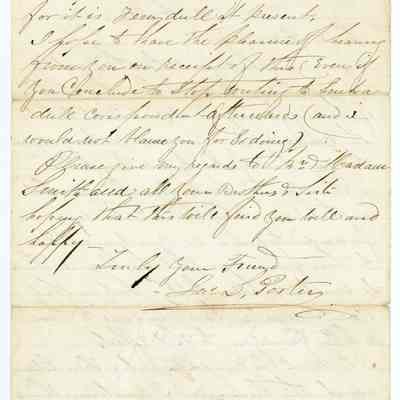 for it is very dull at present.
I hope to have the pleasure of hearing
from you on receipt of this (Even if
you Conclude to Stop writing to such a
dull correspondent afterwards (and I
would not blame you for So doing)
Please give my regards to Mr & Madam
Smith and all your Brothers & Sister
hoping that this will find you well and
happy—
Truly Your Friend
Jas. S. Porter